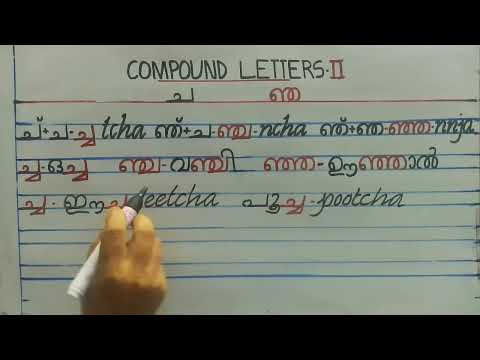 COMPOUND LETTERS-II
ച ഞ
ച്+ച-ച്ച tcha ഞ്+ച-ഞ്ച-ncha ഞ്+ഞ-ഞ്ഞ-nnja
ച്ച-ഒച്ച ഞ്ച-വഞ്ചി ഞ്ഞ-ഊഞ്ഞാൽ
ച്ച-ഈച്ച eetcha പൂച്ച-pootcha